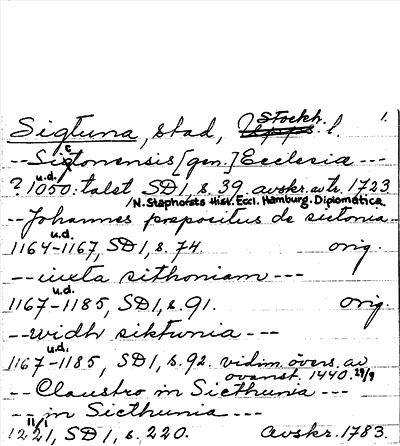 Sigtuna, stad, Stockh. l. 1.
--Sictonensis [gen.] Ecclesia ---
u.d.
? 1050: talet SD1, s. 39. avskr. av tr. 1723
/N. Staphorsts Hist. Eccl. Hamburg. Diplomatica.
--Johannes prepositus de sictonia--
u.d.
1164-1167, SD1, s. 74. orig.
--iuxta sithoniam ---
u.d.
1167-1185, SD1, s. 91. orig.
--widh siktunia ---
u.d.
1167-1185, SD1, s. 92. vidim. övers. av
ovanst. 1440. 29/9
--Claustro in Sicthunia ---
--in Sicthunia ---
11/1
1221, SD1, s. 220. Avskr. 1783.